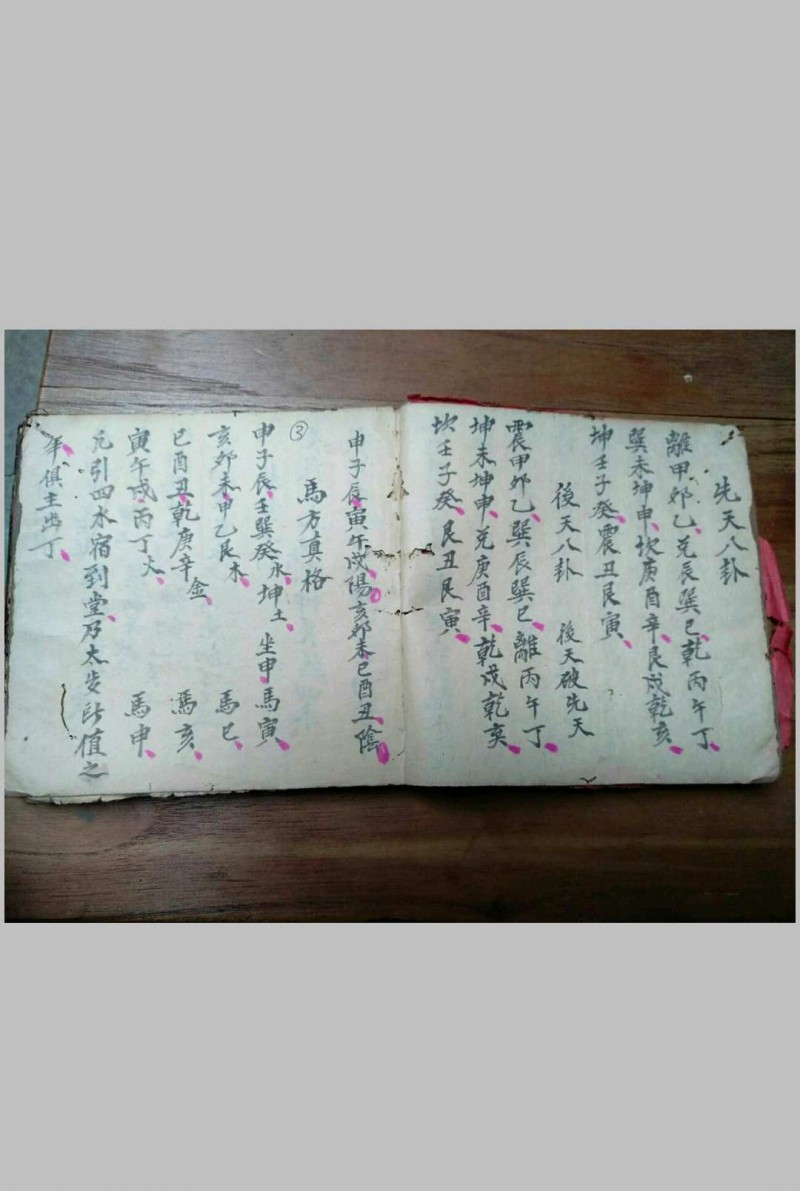 先天八卦
離甲卯乙兌辰巽巳乾丙午丁
巽未坤申坎庚酉辛艮戌乾亥
坤壬子癸震丑艮寅
後天八卦 後天破先天
震甲卯乙巽辰巽巳離丙午丁
坤未坤申兌庚酉辛乾戌乾亥
坎壬子癸艮丑艮寅
申子辰寅午戌陽亥卯未巳酉丑陰
③
馬方真格
申子辰壬巽癸水坤土坐申馬寅
亥卯未甲乙艮木 馬巳
巳酉丑乾庚辛金 馬亥
寅午戌丙丁火 馬申
凡引四水宿到堂乃太歲所值之
年俱主出丁